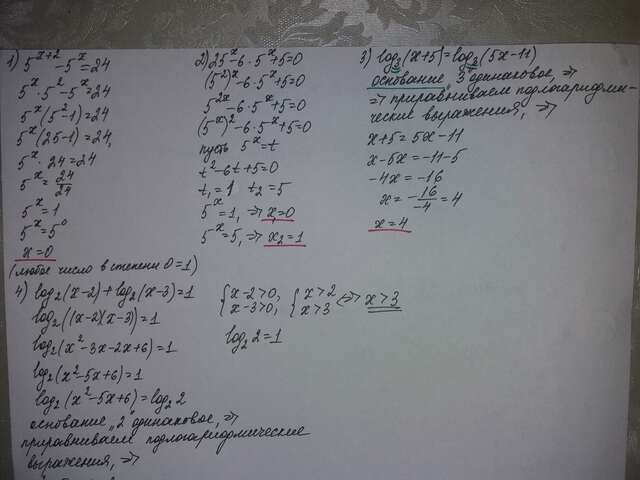 1) 5^(x+2) - 5^x = 24
5^x · 5^2 - 5^x = 24
5^x (5^2 - 1) = 24
5^x (25 - 1) = 24,
5^x · 24 = 24
5^x = 24/24
5^x = 1
5^x = 5^0
x = 0
(любое число в степени 0 = 1)
2) 25^x - 6 · 5^x + 5 = 0
(5^2)^x - 6 · 5^x + 5 = 0
5^(2x) - 6 · 5^x + 5 = 0
(5^x)^2 - 6 · 5^x + 5 = 0
пусть 5^x = t
t^2 - 6t + 5 = 0
t₁ = 1 t₂ = 5
5^x = 1, => x₁ = 0
5^x = 5, => x₂ = 1
3) log₃(x+5) = log₃(5x-11)
основание „3" одинаковое, =>
=> приравниваем подлогарифми-
ческие выражения, =>
x + 5 = 5x - 11
x - 5x = -11 - 5
-4x = -16
x = -16/-4 = 4
x = 4
4) log₂(x-2) + log₂(x-3) = 1
log₂((x-2)(x-3)) = 1
log₂(x² - 3x - 2x + 6) = 1
log₂(x² - 5x + 6) = 1
log₂(x² - 5x + 6) = log₂ 2
основание „2" одинаковое, =>
приравниваем подлогарифмические
выражения, =>
{ x - 2 > 0, { x > 2
x - 3 > 0, x > 3 <=> x > 3
log₂ 2 = 1